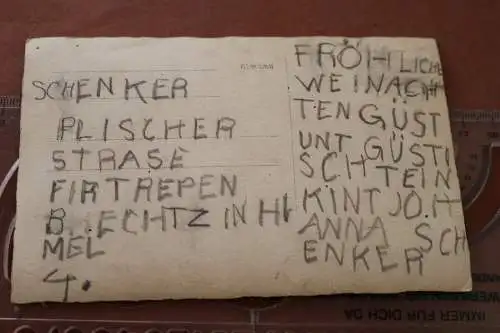 SCHENKER
PLISCHER
STRASE
FIRTREPEN
B. ECHTZ IN HI
MEL
4.
FRÖHLICHE
WEINACH
TEN GÜST
UNT GÜSTI
SCH TEIN
KINT JO.H
ANNA SCH
ENKER
IMMER FÜR DICH DA